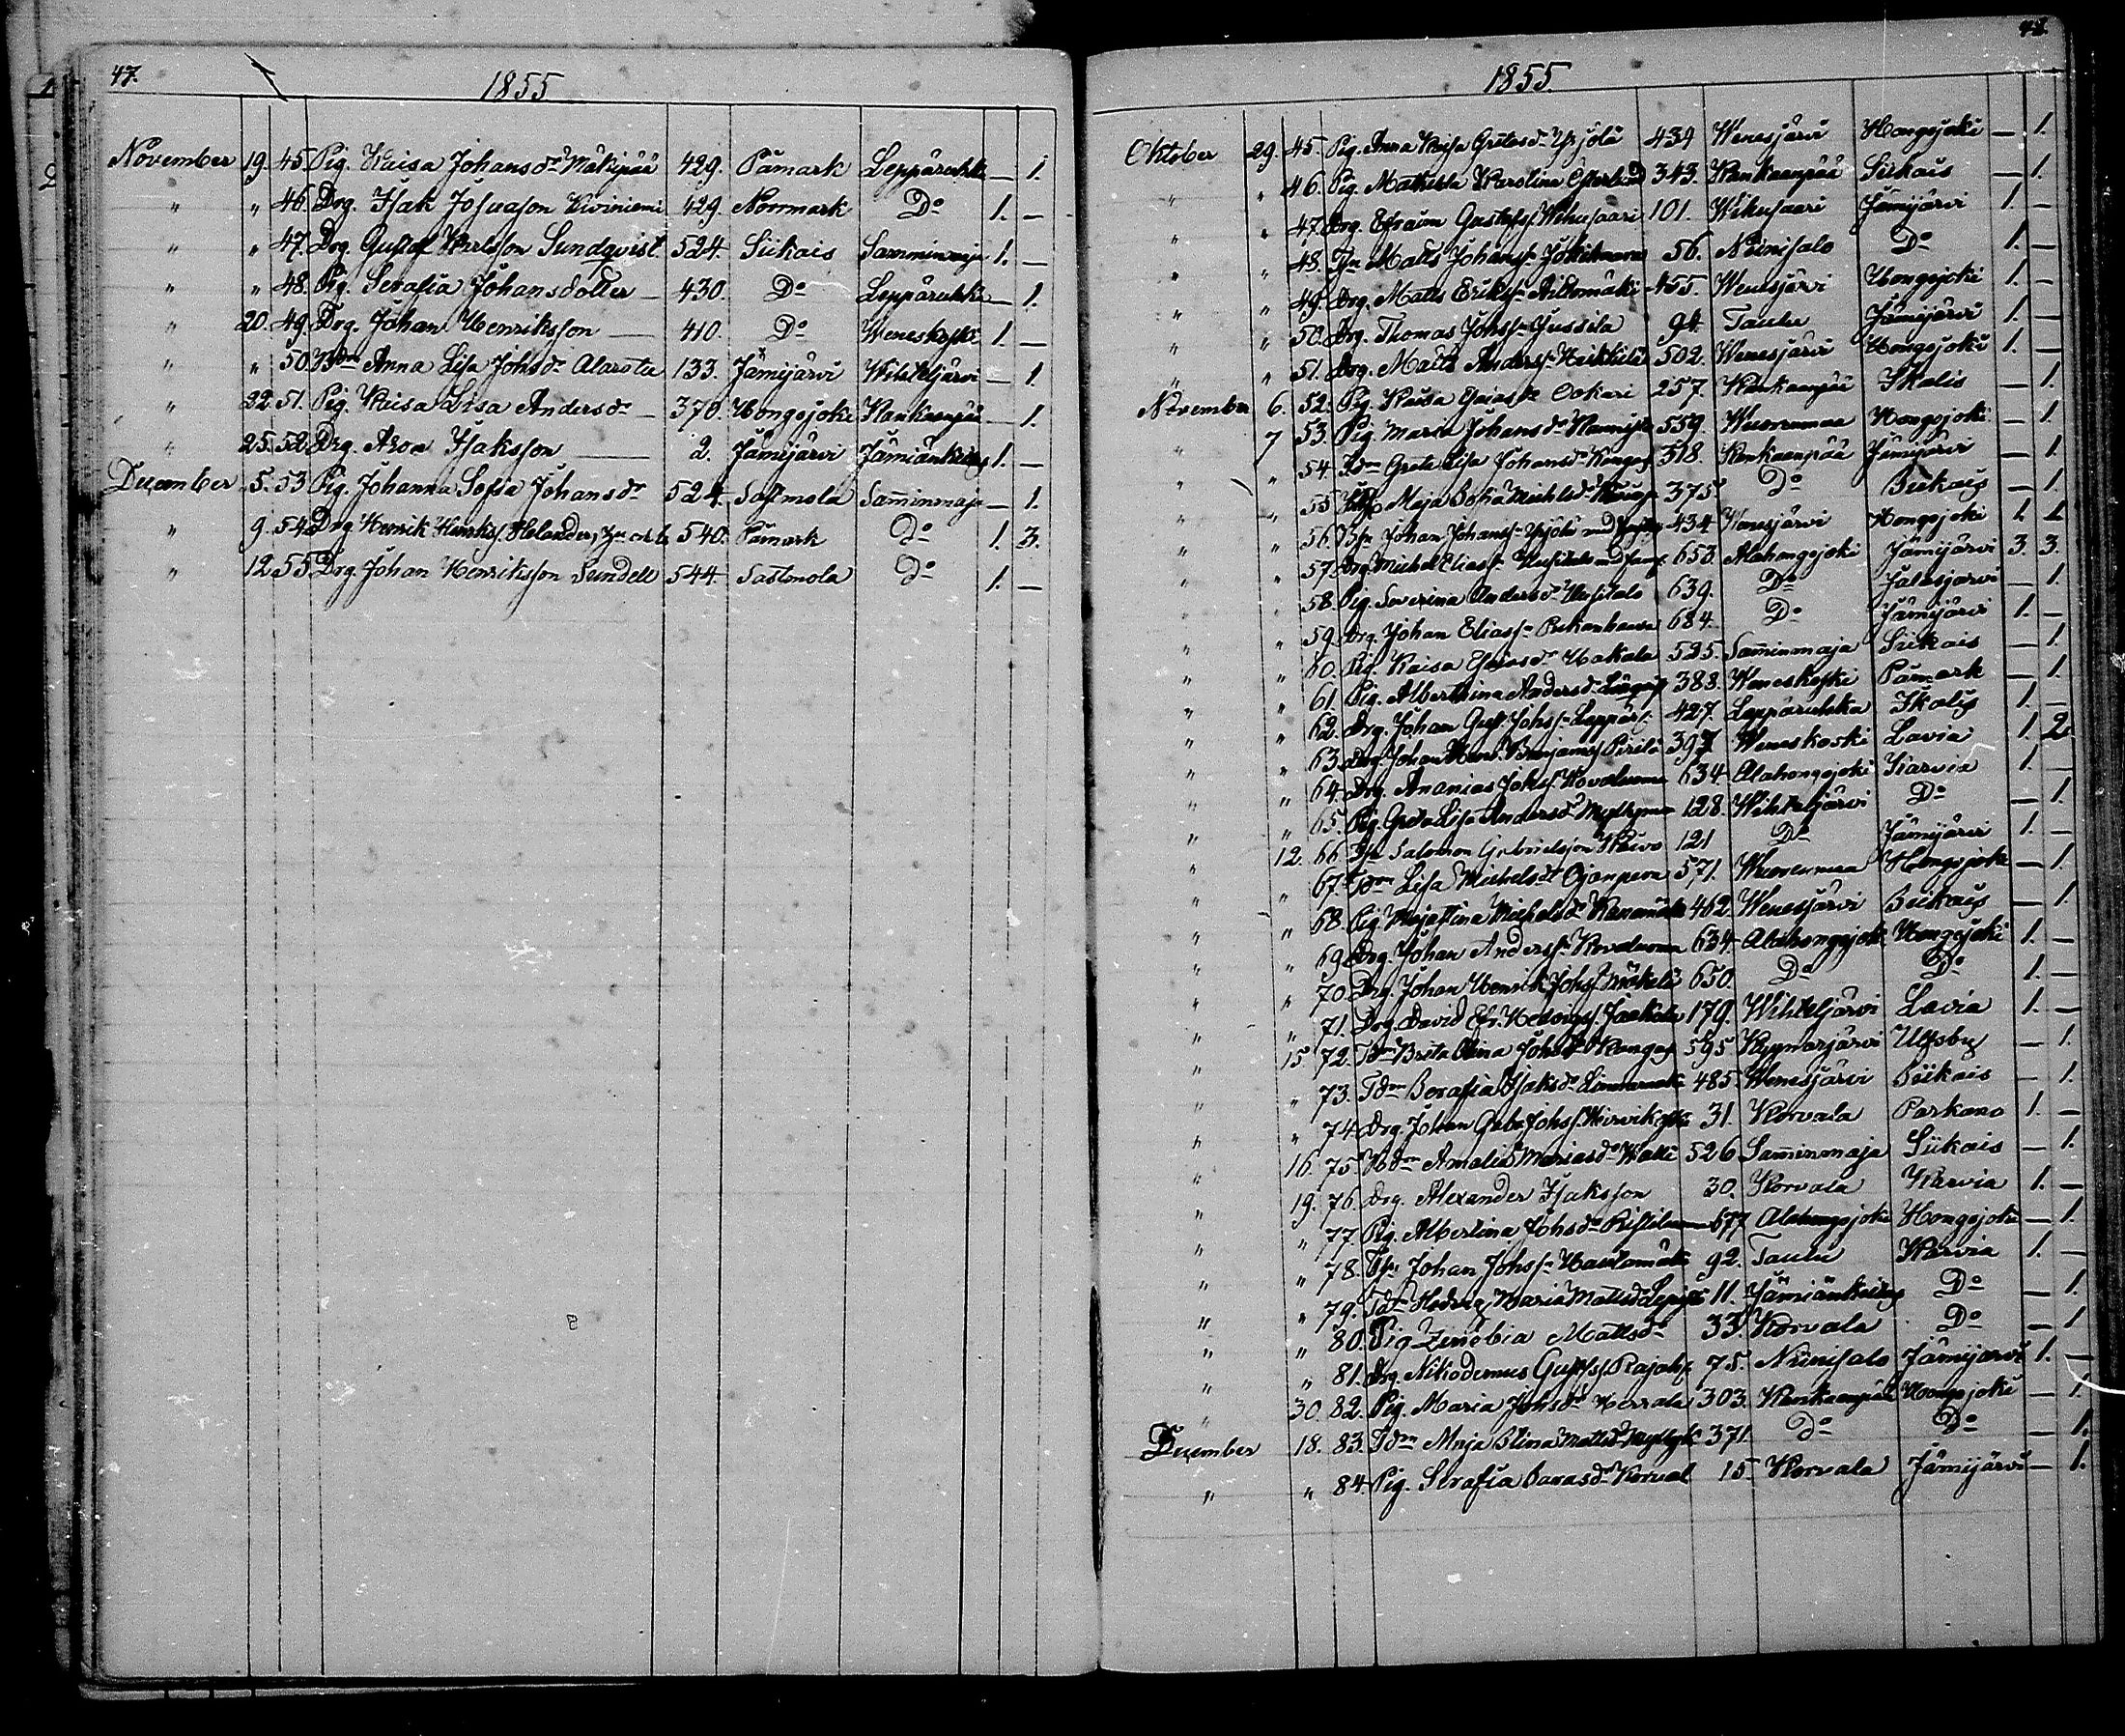 47.
1855
November 19. 45. Pig. Kaisa Johansdr Mäkipää 429. Påmark Leppäruhka — 1.
" " 46. Drg. Isak Josuason Kiviniemi 429. Norrmark Do 1. —
" " 47. Drg. Gustaf Karlsson Sundqvist 524. Siikais Samminmaja 1. —
" " 48. Pig. Serafia Johansdotter — 430. Do Leppäruhka — 1.
" 20. 49. Drg. Johan Henriksson — 410. Do Weneskoski 1. —
" " 50. Anna Lisa Johsdr Alarotu 133. Jämijärvi Wihteljärvi — 1.
" 22. 51. Pig. Kaisa Lisa Andersdr — 370. Hongojoki Kankaanpää — 1.
" 25. 52. Drg. Aron Isaksson — 2. Jämijärvi Jämiänkeidas 1. —
December 5. 53. Pig. Johanna Sofia Johansdr 524. Sastmola Samminmaja — 1.
" 9. 54. Drg. Henrik Henriks. Helander, 540. Påmark Do 1. 3.
" 12. 55. Drg. Johan Henriksson Sundell 544. Sastmola Do 1. —
48.
1855.
Oktober 29. 45. Pig. Anna Kaisa Gretasdr Yrjölä 439 Wenesjärvi Hongojoki — 1.
" " 46. Pig. Mathilda Karolina Esterlund 343. Kankaanpää Siikais — 1.
" " 47. Drg. Efraim Gustafss. Wihusaari 101. Wihusaari Jämijärvi 1. —
" " 48. Matts Johanss. 56. Niinisalo Do 1. —
" " 49. Drg. Matts Erikss. 455. Wenesjärvi Hongojoki 1. —
" " 50. Drg. Thomas Johss. Jussila 94. Taulu Jämijärvi 1. —
" " 51. Drg. Matts Anderss. Heikkilä 502. Wenesjärvi Hongojoki 1. —
November 6. 52. Pig. Kaisa Ookari 257. Kankaanpää Ikalis — 1.
" 7 53. Pig. Maria Johansdr 559. Wuorenmaa Hongojoki — 1.
" " 54. Greta Lisa Johansdr 318. Kankaanpää Jämijärvi — 1.
" " 55. Maja Sofia Michlsdr 375. Do Siikais — 1.
" " 56. Johan Johanss. Yrjölä med 434 Wenesjärvi Hongojoki 1. 1.
" " 57. Drg. Michel Eliass. 653. Alahongojoki Jämijärvi 3. 3.
" " 58. Pig. Severina Andersdr 639. Do Jalasjärvi — 1.
" " 59. Drg. Johan Eliass. 684. Do Jämijärvi 1. —
" " 60. Pig. Kaisa Hakala 525. Samminmaja Siikais — 1.
" " 61. Pig. Albertina Andersdr 388. Weneskoski Påmark — 1.
" " 62. Drg. Johan Gust. Johss. 427. Leppäruhka Ikalis 1. —
" " 63. Drg. Johan Benjams. Pirilä 397. Weneskoski Lavia 1. 2.
" " 64. Drg. Ananias Johss. Kovaluoma 634. Alahongojoki Karvia 1. —
" " 65. Pig. Greta Lisa Andersdr 128. Wihteljärvi Do — 1.
" 12. 66. Salomon Gabrielsson 121 Do Jämijärvi 1. —
" " 67. Lisa Michelsdr Ojanpera 571. Wuorenmaa Hongojoki — 1.
" " 68. Pig. Majastina Michelsdr 462. Wenesjärvi Siikais — 1.
" " 69. Drg. Johan Anderss. Kovaluoma 634. Alahongojoki Hongojoki 1. —
" " 70. Drg. Johan Henrik Johss. Mäkelä 650. Do Do 1. —
" " 71. Drg. David Jaakola 179. Wihteljärvi Lavia 1. —
" 15. 72. Brita Stina Johsdr 595. Kyynärjärvi Ulfsby — 1.
" " 73. Serafia Isaksdr 485. Wenesjärvi Siikais — 1.
" " 74. Drg. Johan Johss. 31. Korvala Parkano 1. —
" 16. 75. Amalia Mariasdr Walli 526 Samminmaja Siikais — 1.
" 19. 76. Drg. Alexander Isaksson 30. Korvala Karvia 1. —
" " 77. Pig. Albertina Johsdr 677 Alahongojoki Hongojoki — 1.
" " 78. Johan Johss. Hautamäki 92. Taulu Karvia 1. —
" " 79. Hedvig Maria Mattsdr 11. Jämiänkeidas Do — 1.
" " 80. Pig. Zenobia Mattsdr 33. Korvala Do — 1
" " 81. Drg. Nikodemus 75. Niinisalo Jämijärvi 1. —
" 30. 82. Pig. Maria Johsdr Kerrala 303. Kankaanpää Hongojoki — 1.
December 18. 83. Maja Stina Mattsdr 371. Do Do — 1.
" " 84. Pig. Serafia 15. Korvala Jämijärvi — 1.